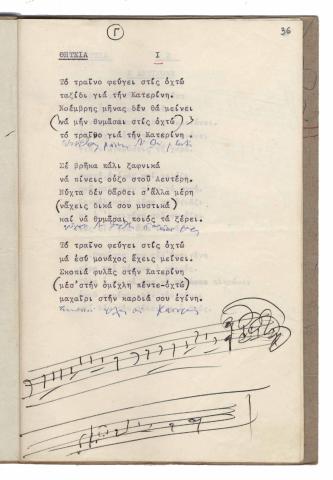 Γ
36
ΘΗΤΧΙΑ I
Τό τραῖνο φεύγει στίς ὀχτώ
ταξίδι γιά τήν Κατερίνη.
Νοέμβρης μήνας δέν θά μείνει
(νά μήν θυμᾶσαι στίς ὀχτώ)
τό τραῖνο γιά τήν Κατερίνη .
Σέ βρῆκα πάλι ξαφνικά
νά πίνεις οὖζο στοῦ Λευτέρη.
Νύχτα δέν θἄρθει σ'ἄλλα μέρη
(νἄχεις δικά σου μυστικά)
καί νά θυμᾶσαι ποιός τά ξέρει.
Τό τραῖνο φεύγει στίς ὀχτώ
μά ἐσύ μονάχος ἔχεις μείνει.
Σκοπιά φυλᾶς στήν Κατερίνη
(μέσ'στήν ὀμίχλη πέντε-ὀχτώ)
μαχαίρι στήν καρδιά σου ἐγίνη.